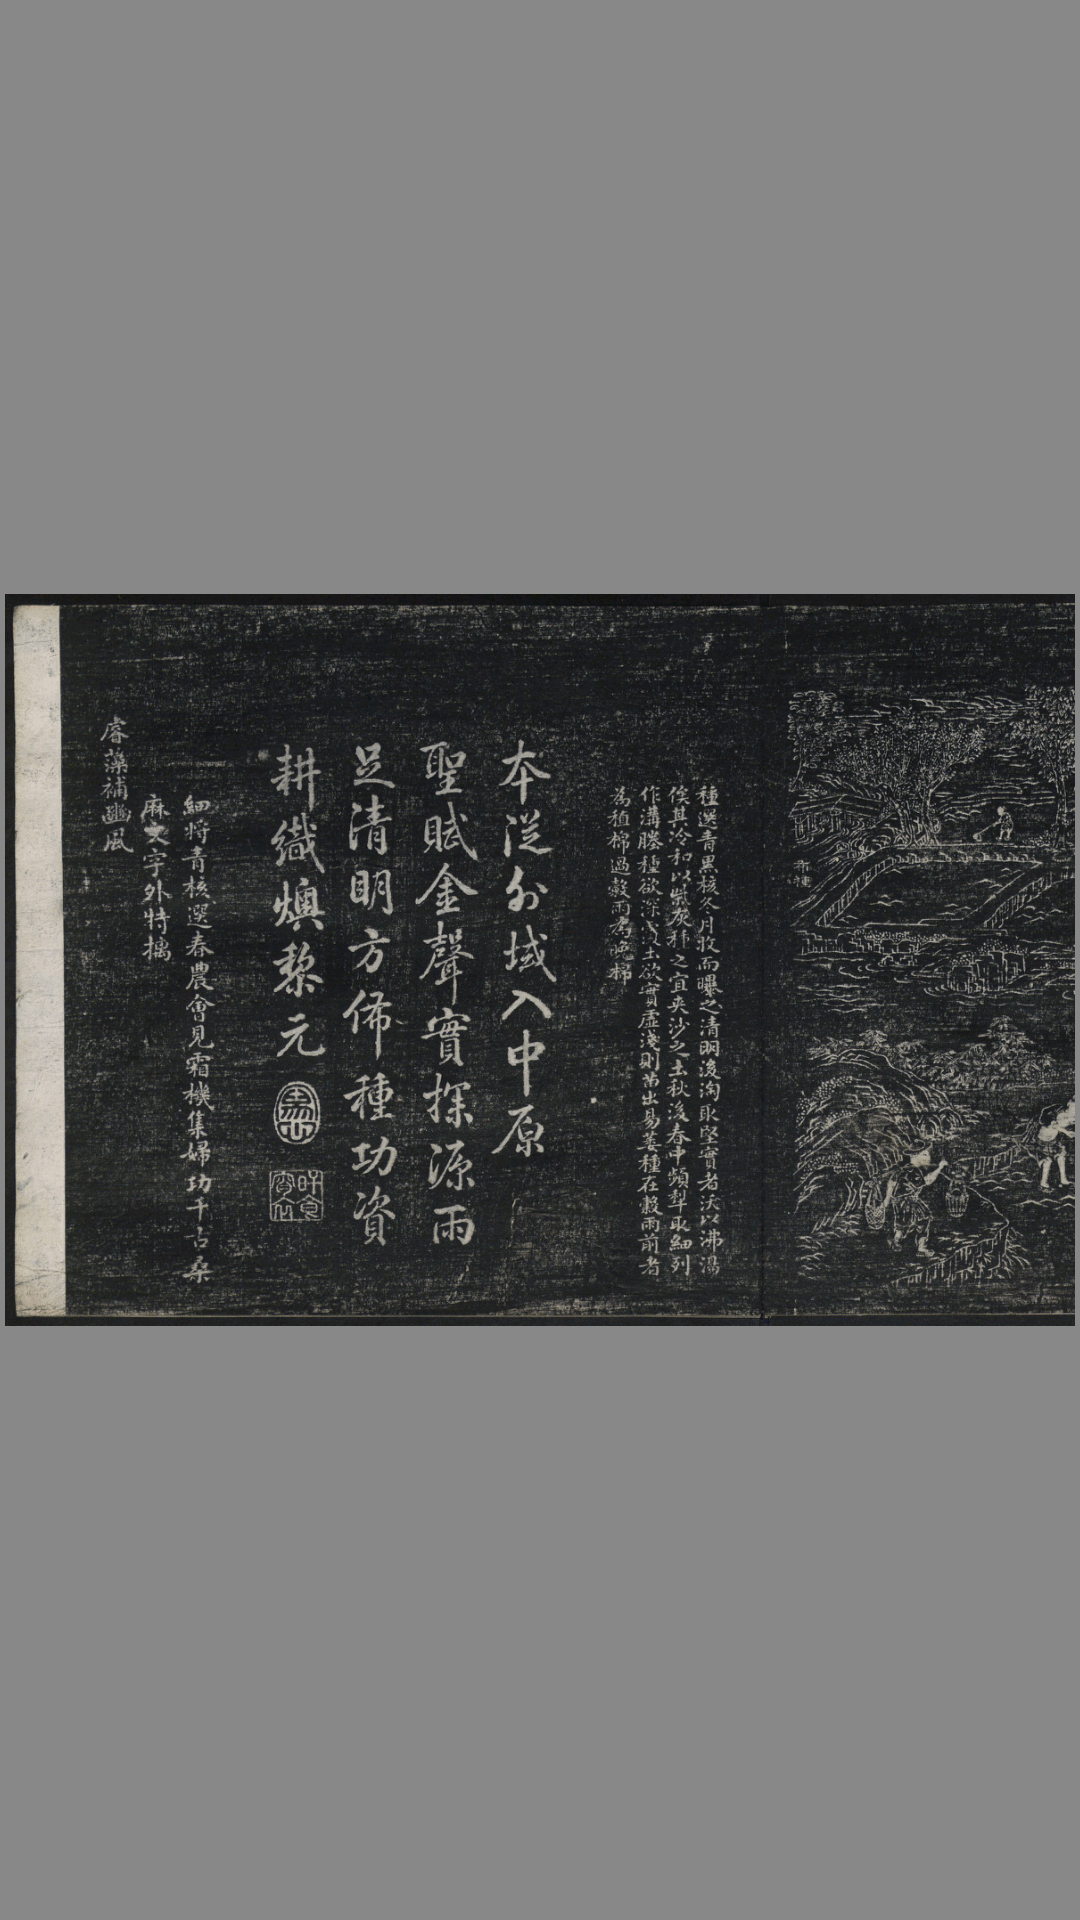 布種
種選青黑核冬月收而曝之清明後淘取堅實者沃以沸湯
俟其冷和以柴灰種之宜夾沙之土秋後春中頻犁取細列
作溝塍種欲深覆土欲實虛淺則苗出易萎種在穀雨前者
為植棉過穀雨為晚棉
本從外域入中原
聖賦金聲實探源雨
足清明方佈種功資
耕織燠黎元
細將青核選春農會見霜機集婦功千古桑
麻文字外特摛
睿藻補豳風